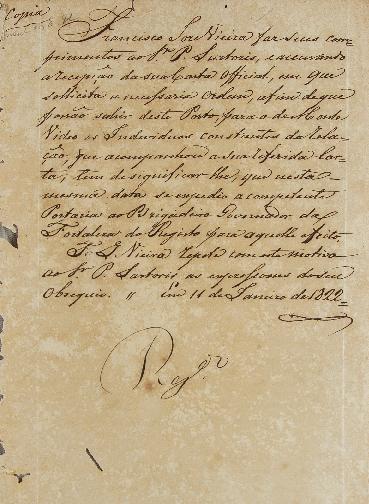 Copia
Francisco José Vieira faz seus com-
primentos ao Sr. P. Sartoris, e accusando
a recepção da sua Carta Official, em que
sollicita a necessaria Ordem, a fim de que
possão sahir deste Porto para o de Monte
Video os Individuos constantes da Rela-
ção, que acompanhou a sua referida Car-
ta; tem de significar-lhe, que nesta
mesma data se expedio a competente
Portaria ao Brigadeiro Governador da
Fortaleza do Registo para aquelle effeito.
F. J. Vieira repete com este motivo
ao Sr. P. Sartoris as expressoens do seu
Obsequio. " Em 11 de Janeiro de 1822 =
Reg.do